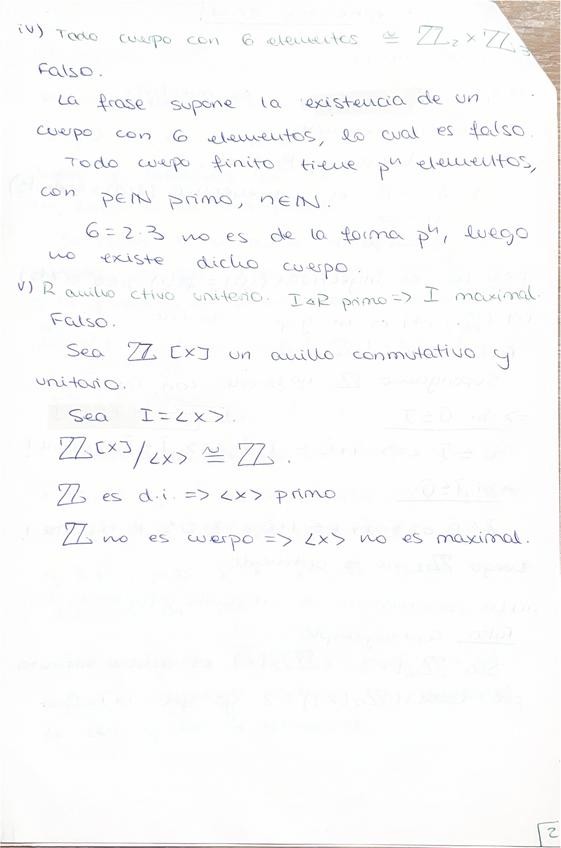 iv) Todo cuerpo con 6 elementos ≅ ℤ₂ × ℤ₃
Falso.
La frase supone la existencia de un
cuerpo con 6 elementos, lo cual es falso.
Todo cuerpo finito tiene pⁿ elementos,
con p∈ℕ primo, n∈ℕ.
6=2·3 no es de la forma pⁿ, luego
no existe dicho cuerpo.
v) R anillo ctivo unitario. I⊲R primo => I maximal.
Falso.
Sea ℤ[x] un anillo conmutativo y
unitario.
Sea I=<x>.
ℤ[x]/<x> ≅ ℤ.
ℤ es d.i. => <x> primo
ℤ no es cuerpo => <x> no es maximal.
2